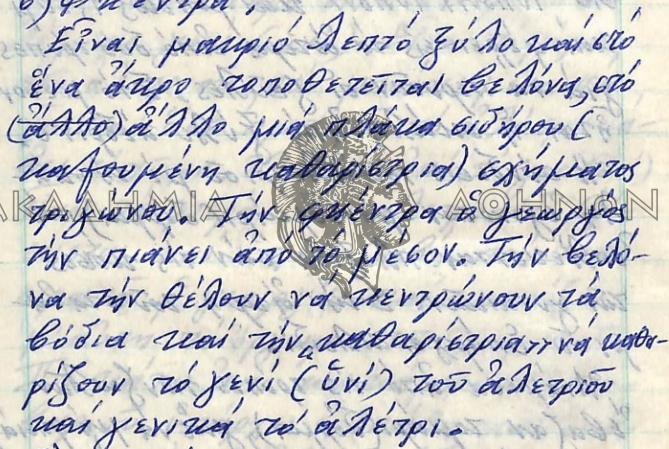 β) φκέντρα.
Εἶναι μακριό λεπτό ξύλο καί στό
ἕνα ἄκρο τοποθετεῖται βελόνα, στό
(ἄλλο) ἄλλο μιά πλάκα σιδήρου (
καλουμένη καθαρίστρια) σχήματος
τριγώνου. Τήν φκέντρα ὁ γεωργός
τήν πιάνει ἀπό τό μέσον. Τήν βελό-
να τήν θέλουν νά κεντρώνουν τά
βόδια καί τήν „καθαρίστρια" νά καθα-
ρίζουν τό γενί (ὑνί) τοῦ ἀλετριοῦ
καί γενικά τό ἀλέτρι.
ΑΚΑΔΗΜΙΑ ΑΘΗΝΩΝ